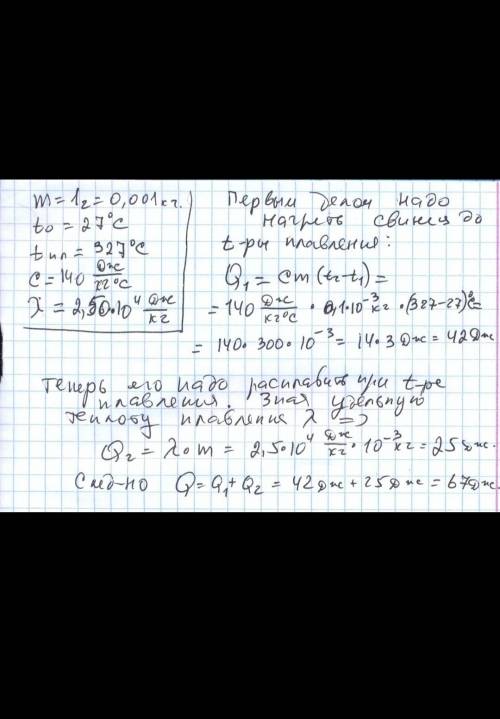 m = 1г = 0,001 кг.
t₀ = 27°C
tпл = 327°C
C = 140 Дж/кг°C
λ = 2,50·10⁴ Дж/кг
Первым делом надо
нагреть свинец до
t-ры плавления:
Q₁ = cm (t₂-t₁) =
= 140 Дж/кг°C · 0,1·10⁻³ кг · (327-27)°C =
= 140·300·10⁻³ = 14·3 Дж = 42 Дж
Теперь его надо расплавить при t-ре
плавления. Зная удельную
теплоту плавления λ =>
Q₂ = λ·m = 2,5·10⁴ Дж/кг · 10⁻³ кг = 25 Дж.
След-но Q = Q₁ + Q₂ = 42 Дж + 25 Дж = 67 Дж.